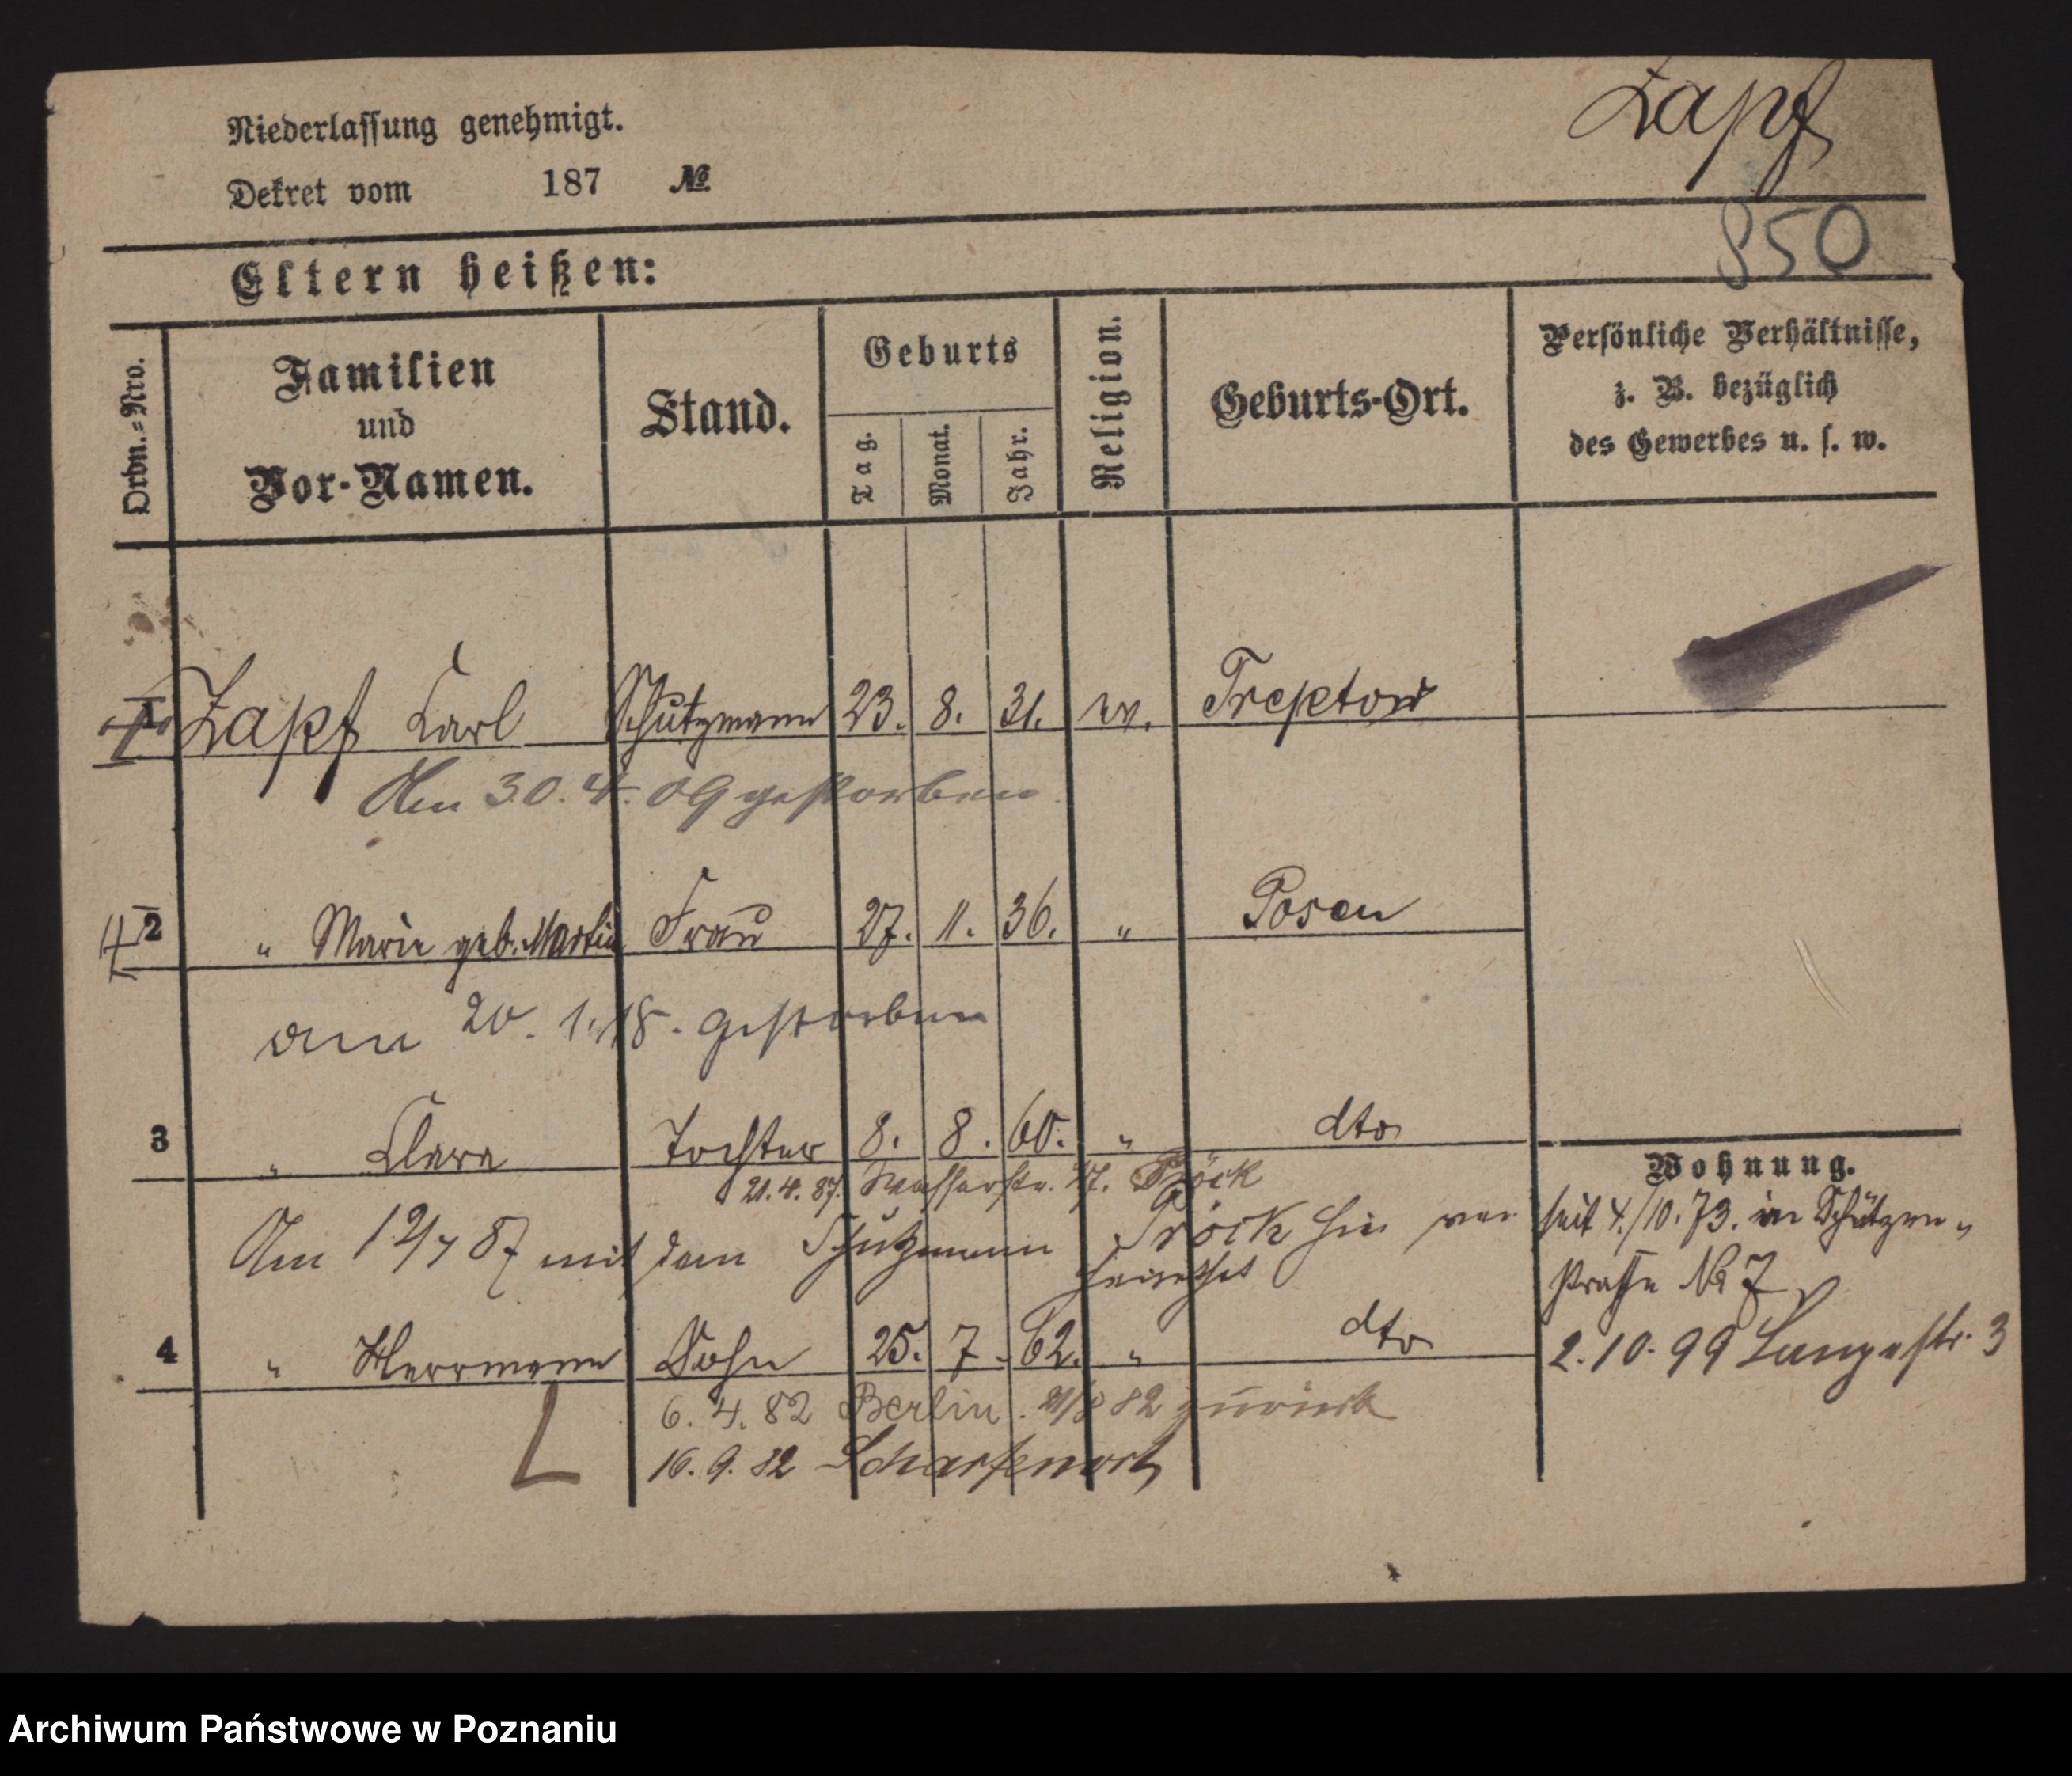 Zapf
Niederlassung genehmigt.
Dekret vom 187 №
850
Eltern heißen:
Ordn.-Nro.
Familien und Vor-Namen.
Stand.
Geburts
Tag.
Monat.
Jahr.
Religion.
Geburts-Ort.
Persönliche Verhältnisse,
z. B. bezüglich
des Gewerbes u. s. w.
Zapf Carl Schutzmann 23. 8. 31. ev. Treptow
Am 30. 4. 09 gestorben.
2 " Marie geb. Martin Frau 27. 11. 36. " Posen
am 20. 1. 18. gestorben
3 " Clara Tochter 8. 8. 60. " dto
21. 4. 87. Wasserstr. Pröck
Am 12/7 87 mit dem Schutzmann Pröck hier ver
heirathet
4 " Herrmann Sohn 25. 7. 62. " dto
6. 4. 82 Berlin. 82 zurück
16. 9. 82 Scharfenort
Wohnung.
seit 4./10. 73. in Schützen„
straße № 7
2. 10. 99 Langestr. 3
Archiwum Państwowe w Poznaniu